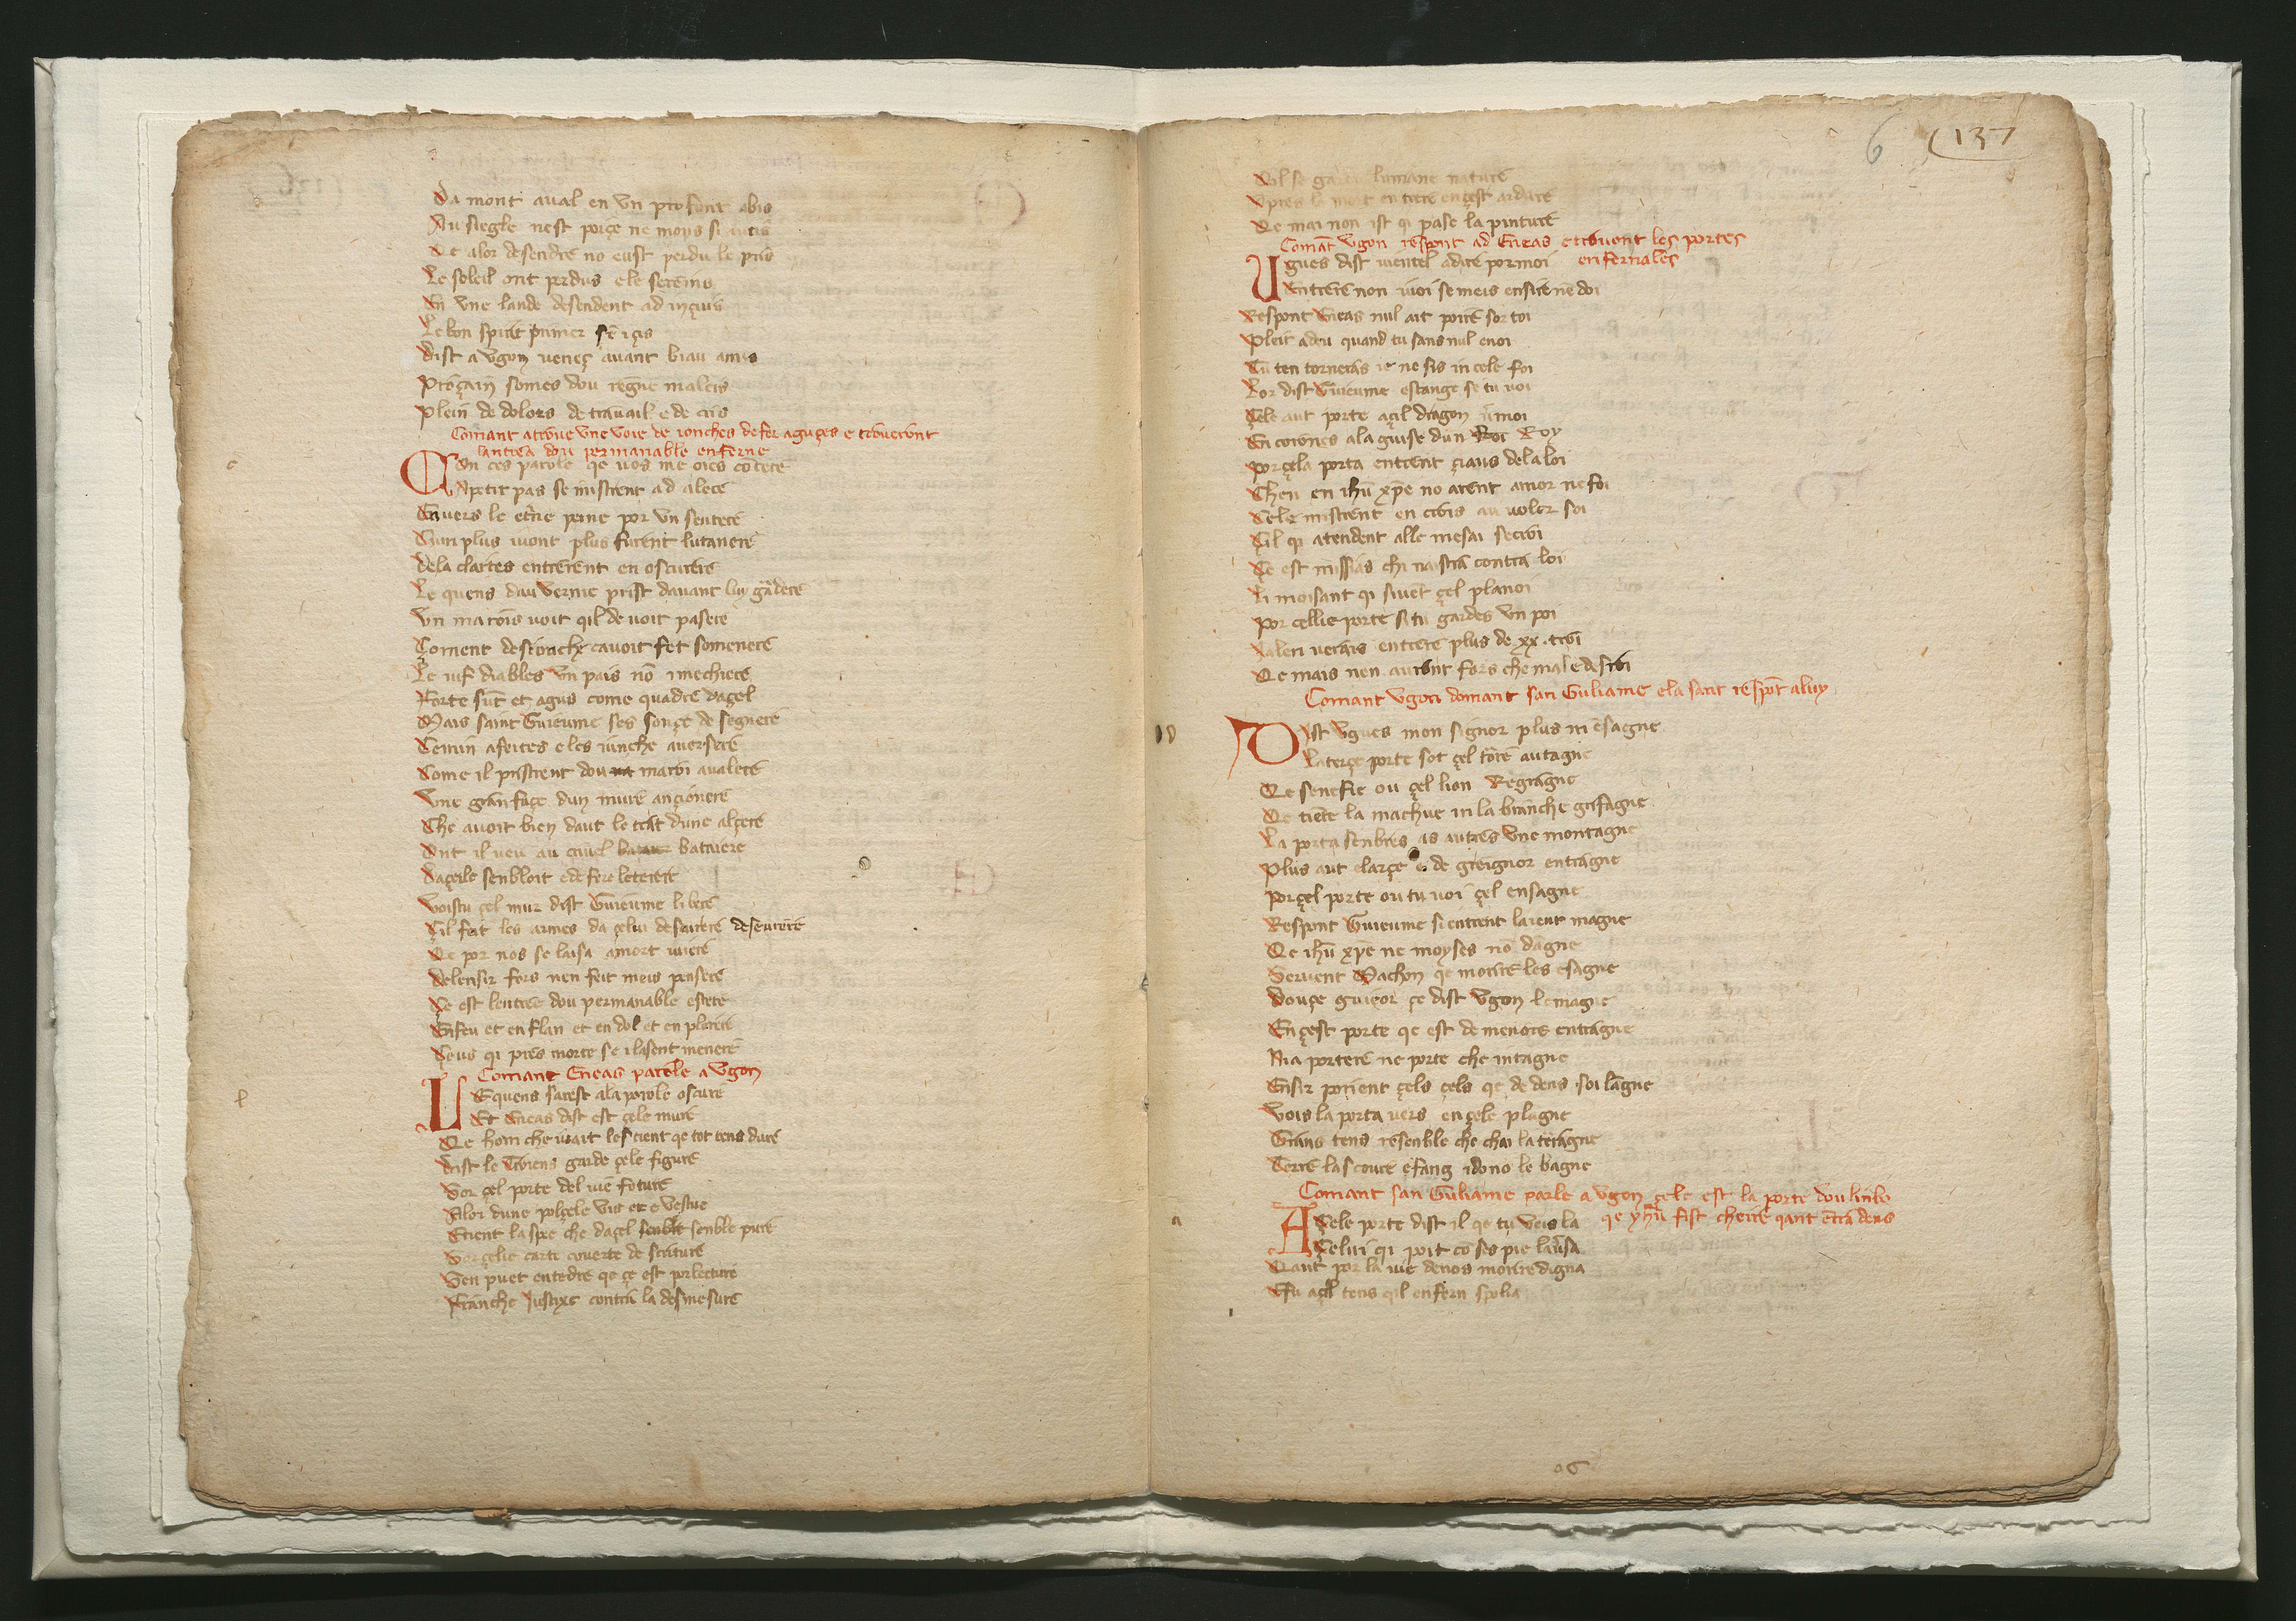 Da mont aual en vn profont abis
Au siegle nest porçe ne mons si autis
Qe alor desendre no eust perdu le pris
Le soleil ont perdus e le serenis
En vne lande desendent ad inçuis
Le bon spirit primer
Dist a vgon ueneç auant biau amis
Proçain somes dou regne maleis
Plein de dolors de trauail e de cris
Comant atroue vne voie de ronches de fer aguçes e trouerunt
lantrea dou permanable enferne
Con ces parole qe uos me oies co̅tere
Apetit pas se mistrent ad alere
Enuers le et'ne peine por vn sentere
Cum plus uont plus furent lutanere
Dela clartes entrerent en oscurere
Le quens dau vernie prist dauant luy gardere
Vn marois uoit qil deuoit pasere
Coment des ronche cauoit fet somenere
Le iuf diables vn pais no̅
Forte su̅t et agus come quadre daçel
Mais saint Guieume ses sonçe de segnere
Cemin afeites e les iunche auersere
Come il pristrent dou maroi aualere
Vne gran façe dun mure ançionere
Che auoit bien daut le trat dune alçere
Ont il ueu au cruel batuiere
Daçeile senbloit e de fere leterere
Voistu çel mur dist Guieume li bere
Çil fait les armes da çelui desaurere deseurere
Qe por nos se laisa amort iuiere
Delensir fors nen feit meis pensere
Ce est lentree dou permanable estere
En feu et en flan et en dol et en plorere
Ceus qi pres morte se ilasent menere
Comant Eneas parole a vgon
LE quens sarest ala parole oscure
Et Eneas dist est çele mure
Qe hom che uait lescrient qe tot tens dure
Dist le Troiens garde çele figure
Sor çel porte del uie foture
Alor dune polçele vit et e vesture
Etient la spee che daçel senble pure
Sorçelie carte couerte de scriture
Sen puet entedre qe çe est por lecture
Franche Justixe contra la desmesure
6 137
Qil se garde lumane nature
Apres la mort entrere en çest ardure
Qe mai non ist qi pase la pinture
Coma̅t vgon respont ad Eneas e trouont les portes
enfernales
Vgues dist uientel adire por moi
Entrere non uoi se meis ensire ne doi
Respont Eneas nul ait poire sor toi
Pleit adeu quand tu sans nul enoi
Tu ten torneras ie ne sis in cele foi
Lor dist Guieume estange se tu uoi
Cele aut porte açil dragon
En corones ala guise dun Roy
Por çela porta entrent çiaus dela loi
Chen en ihu̅ xp̅e no arent amor ne foi
Cele mistrent en crois au voler soi
Cil qi atendent alle mesai secroi
Ce est missias chi naistra contra loi
Li moisant qi siuet çel planoi
Por cellie porte situ gardes vn poi
Laleri uerais entrere plus de xx. troi
Qe mais nen auront fors che male desroi
Comant vgon domant san Guliame e la sant respo̅t aluy
Dist vgues mon signor plus m ensagne
La terçe porte sot çel to̅re autagne
Qe senefie ou çel lion Regragne
Qe tiente la machue in la branche grifagne
La porta senbres as autres vne montagne
Plus aut e larçe e de greignor entragne
Por çel porte ou tu uoi çel ensagne
Respont Guieume si entrent laient magne
Qe ihu̅ xp̅e ne moyses no̅ dagne
Seruent Machon qe morire les esagne
Douçe guieor çe dist vgon le magne
En çest porte qe est de menore entragne
Nia portere ne porte che intagne
Ensir porient çels çels qe de dens soi lagne
Vois la porta uers en çele plagne
Grans tens resenble che chai la teragne
Terre lascoure e fang idono le bagne
Comant san Guliame parle a vgon çele est la porte dou linbo
qe yhu̅ fist cheire qant e̅tra dens
ACele porte dist il qe tu veis la
Celui qi poit co̅ ses pie la u̅sa
Qant por la uie denos morire digna
E fu açel tens qil enfern spolia